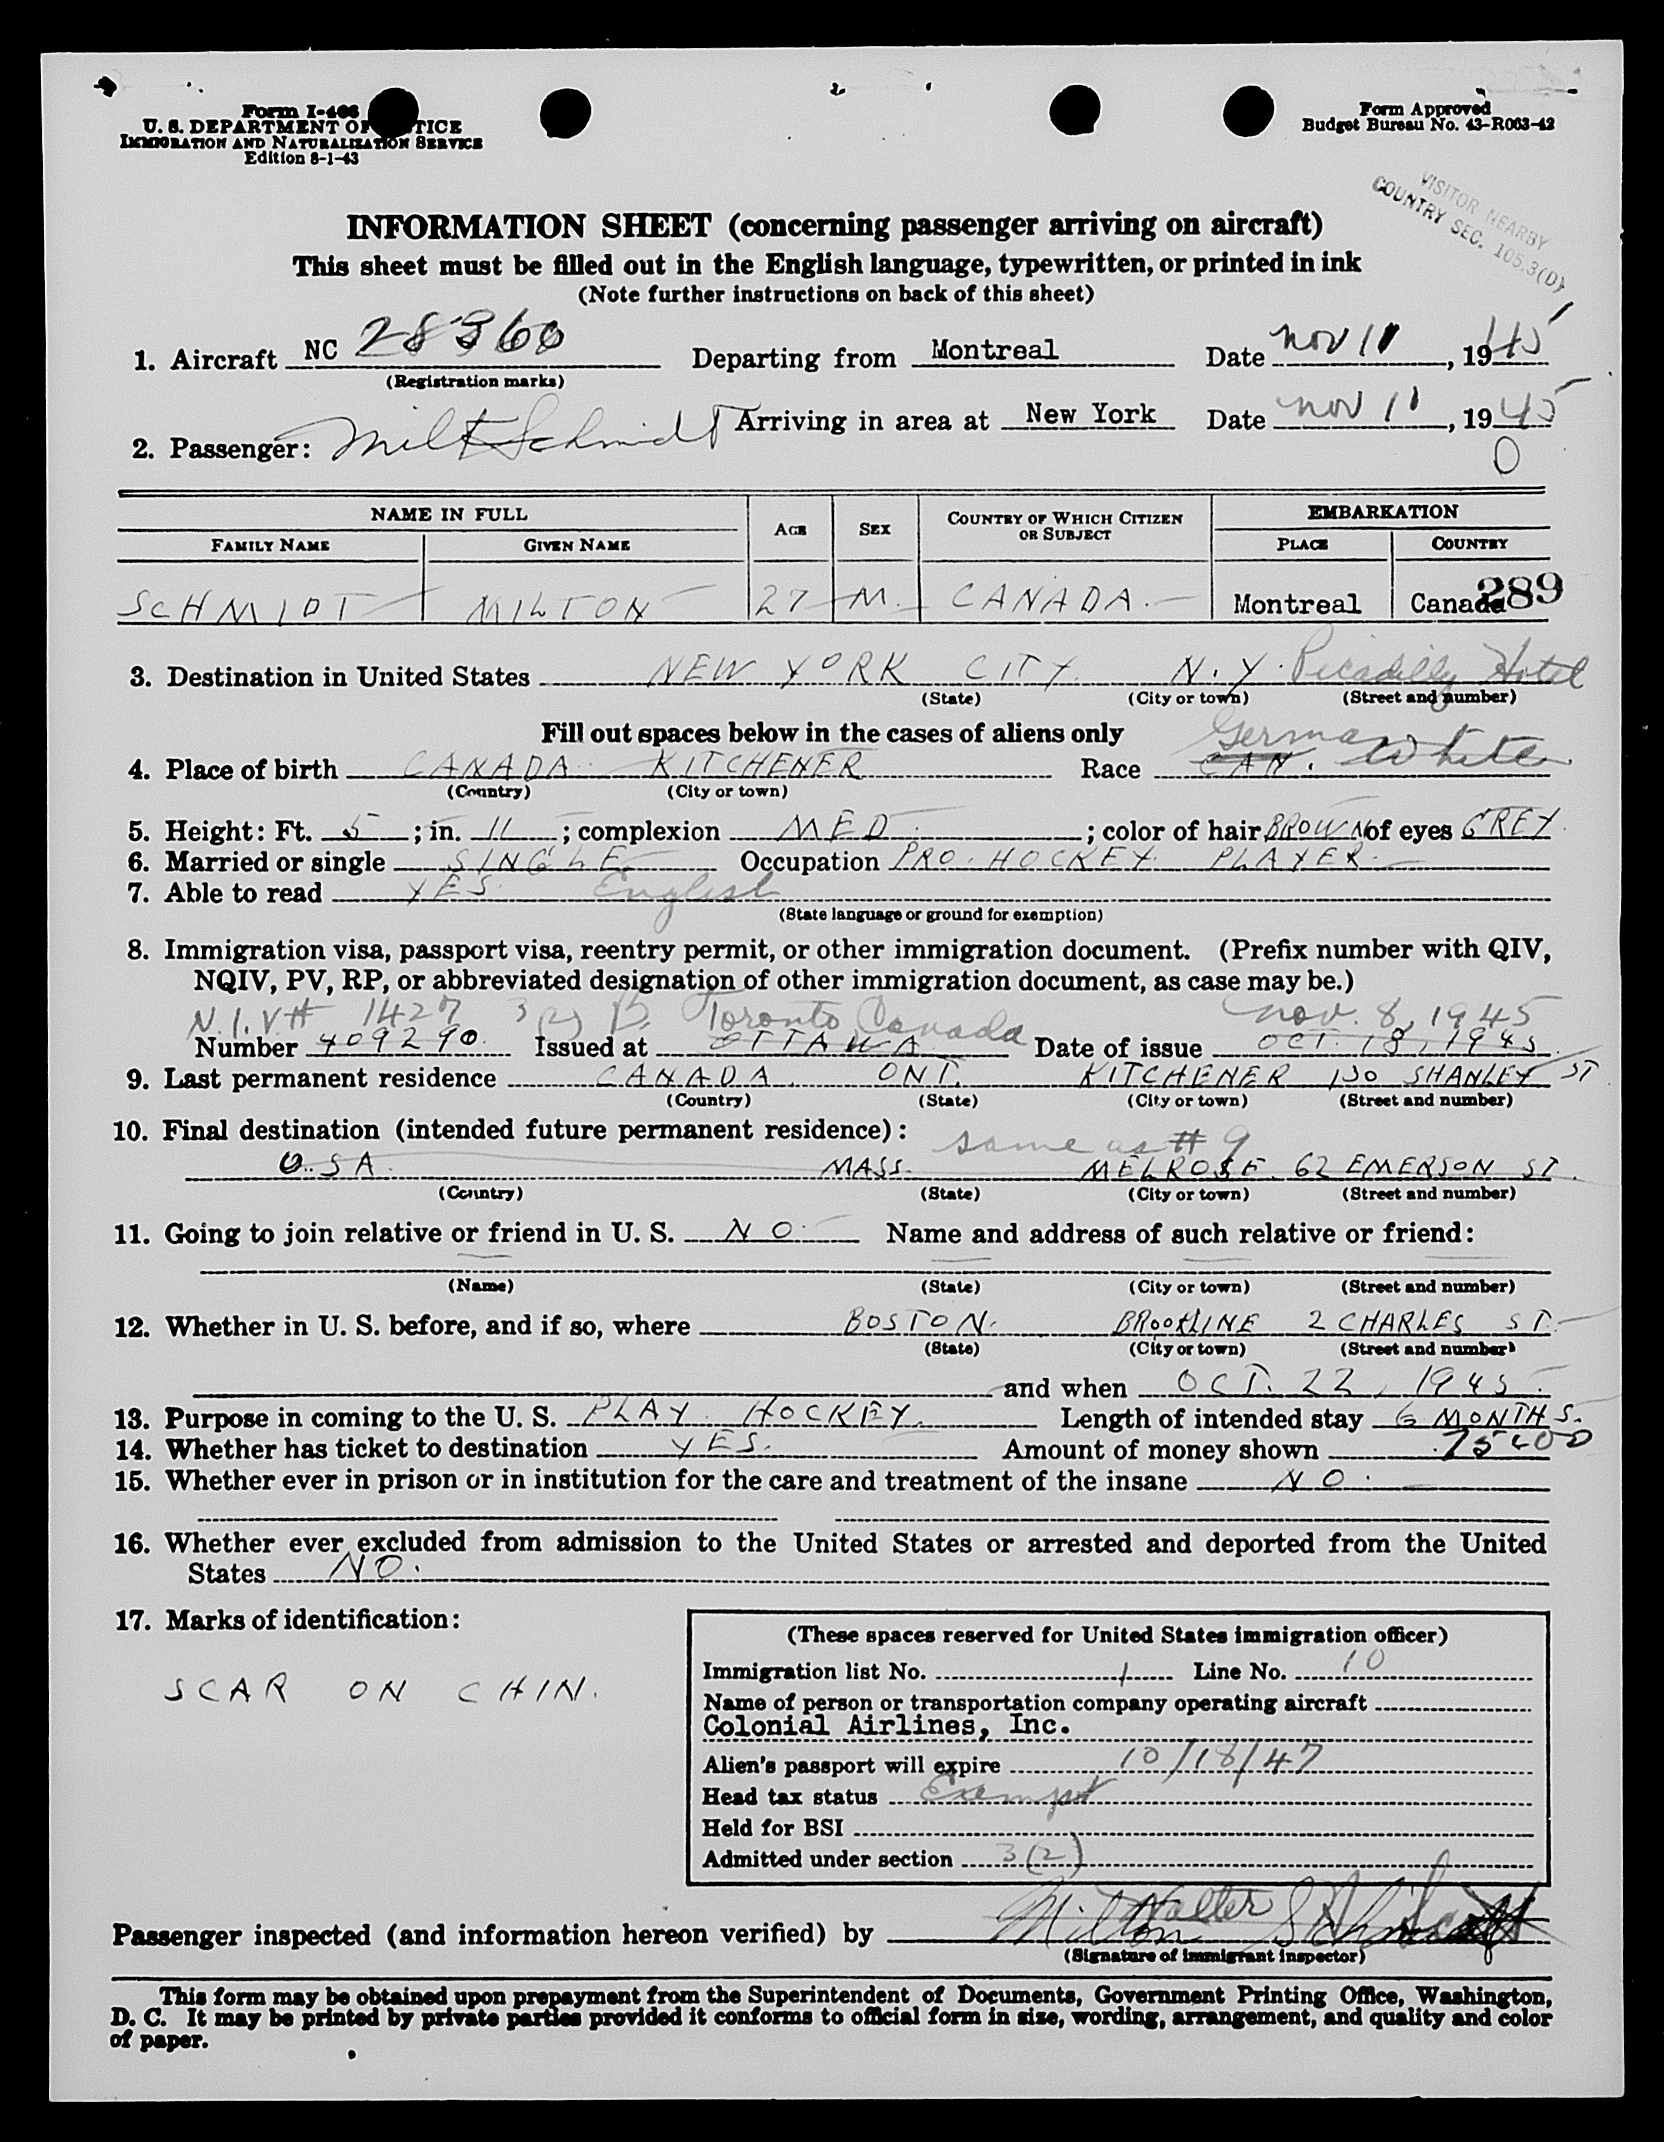 Form I-466
U. S. DEPARTMENT OF JUSTICE
IMMIGRATION AND NATURALIZATION SERVICE
Edition 8-1-43
Form Approved
Budget Bureau No. 43-R063-42
VISITOR NEARBY
COUNTRY SEC. 105.3(D)
INFORMATION SHEET (concerning passenger arriving on aircraft)
This sheet must be filled out in the English language, typewritten, or printed in ink
(Note further instructions on back of this sheet)
1. Aircraft NC 28360 Departing from Montreal Date Nov 11, 1945
(Registration marks)
Arriving in area at New York Date Nov 11, 1945
2. Passenger: Milt Schmidt
0
NAME IN FULL AGE SEX COUNTRY OF WHICH CITIZEN OR SUBJECT EMBARKATION
FAMILY NAME GIVEN NAME PLACE COUNTRY
SCHMIDT MILTON 27 M. CANADA. Montreal Canada 289
3. Destination in United States NEW YORK CITY. N.Y. Picadilly Hotel
(State) (City or town) (Street and number)
Fill out spaces below in the cases of aliens only
German
4. Place of birth CANADA. KITCHENER Race CAN. White
(Country) (City or town)
5. Height: Ft. 5; in. 11; complexion MED.; color of hair BROWN of eyes GREY.
6. Married or single SINGLE Occupation PRO. HOCKEY. PLAYER.
7. Able to read YES. English
(State language or ground for exemption)
8. Immigration visa, passport visa, reentry permit, or other immigration document. (Prefix number with QIV,
NQIV, PV, RP, or abbreviated designation of other immigration document, as case may be.)
N.I.V# 1427 Toronto Canada Nov. 8, 1945
Number 409290. Issued at OTTAWA Date of issue OCT. 18, 1945.
9. Last permanent residence CANADA. ONT. KITCHENER 130 SHANLEY ST
(Country) (State) (City or town) (Street and number)
10. Final destination (intended future permanent residence): same as #9
U.S.A. MASS. MELROSE. 62 EMERSON ST.
(Country) (State) (City or town) (Street and number)
11. Going to join relative or friend in U. S. NO. Name and address of such relative or friend:
(Name) (State) (City or town) (Street and number)
12. Whether in U. S. before, and if so, where BOSTON. BROOKLINE 2 CHARLES ST.
(State) (City or town) (Street and number)
and when OCT. 22, 1945.
13. Purpose in coming to the U. S. PLAY HOCKEY. Length of intended stay 6 MONTHS.
14. Whether has ticket to destination YES. Amount of money shown
15. Whether ever in prison or in institution for the care and treatment of the insane NO.
16. Whether ever excluded from admission to the United States or arrested and deported from the United
States NO.
17. Marks of identification:
SCAR ON CHIN.
(These spaces reserved for United States immigration officer)
Immigration list No. 1 Line No. 10
Name of person or transportation company operating aircraft
Colonial Airlines, Inc.
Alien's passport will expire 10/18/47
Head tax status Exempt
Held for BSI
Admitted under section 3(2)
Passenger inspected (and information hereon verified) by Milton Schmidt Walter
(Signature of immigrant inspector)
This form may be obtained upon prepayment from the Superintendent of Documents, Government Printing Office, Washington,
D. C. It may be printed by private parties provided it conforms to official form in size, wording, arrangement, and quality and color
of paper.